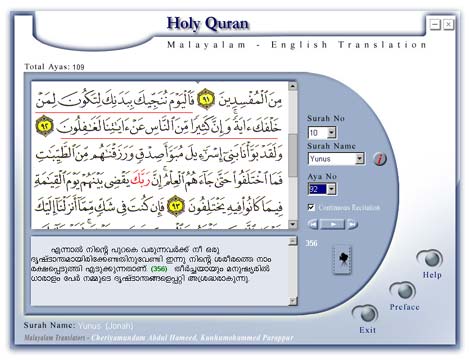 Holy Quran
Malayalam - English Translation
Total Ayas: 109
مِنَ الْمُفْسِدِينَ ٩١ فَالْيَوْمَ نُنَجِّيكَ بِبَدَنِكَ لِتَكُونَ لِمَنْ
خَلْفَكَ ءَايَةً وَإِنَّ كَثِيرًا مِّنَ النَّاسِ عَنْ ءَايَٰتِنَا لَغَٰفِلُونَ ٩٢
وَلَقَدْ بَوَّأْنَا بَنِي إِسْرَٰٓءِيلَ مُبَوَّأَ صِدْقٍ وَرَزَقْنَٰهُم مِّنَ الطَّيِّبَٰتِ
فَمَا اخْتَلَفُوا حَتَّىٰ جَاءَهُمُ الْعِلْمُ إِنَّ رَبَّكَ يَقْضِي بَيْنَهُمْ يَوْمَ الْقِيَٰمَةِ
فِيمَا كَانُوا فِيهِ يَخْتَلِفُونَ ٩٣ فَإِن كُنتَ فِي شَكٍّ مِّمَّا أَنزَلْنَا إِلَيْكَ
Surah No
10
Surah Name
Yunus
Aya No
92
Continuous Recitation
356
എന്നാല്‍ നിന്‍റെ പുറകെ വരുന്നവര്‍ക്ക് നീ ഒരു
ദൃഷ്ടാന്തമായിരിക്കേണ്ടതിനുവേണ്ടി ഇന്നു നിന്‍റെ ശരീരത്തെ നാം
രക്ഷപ്പെടുത്തി എടുക്കുന്നതാണ്. (356) തീര്‍ച്ചയായും മനുഷ്യരില്‍
ധാരാളം പേര്‍ നമ്മുടെ ദൃഷ്ടാന്തങ്ങളെപ്പറ്റി അശ്രദ്ധരാകുന്നു.
Help
Preface
Exit
Surah Name: Yunus (Jonah)
Malayalam Translators - Cheriyamundam Abdul Hameed, Kunhumohammed Parappur